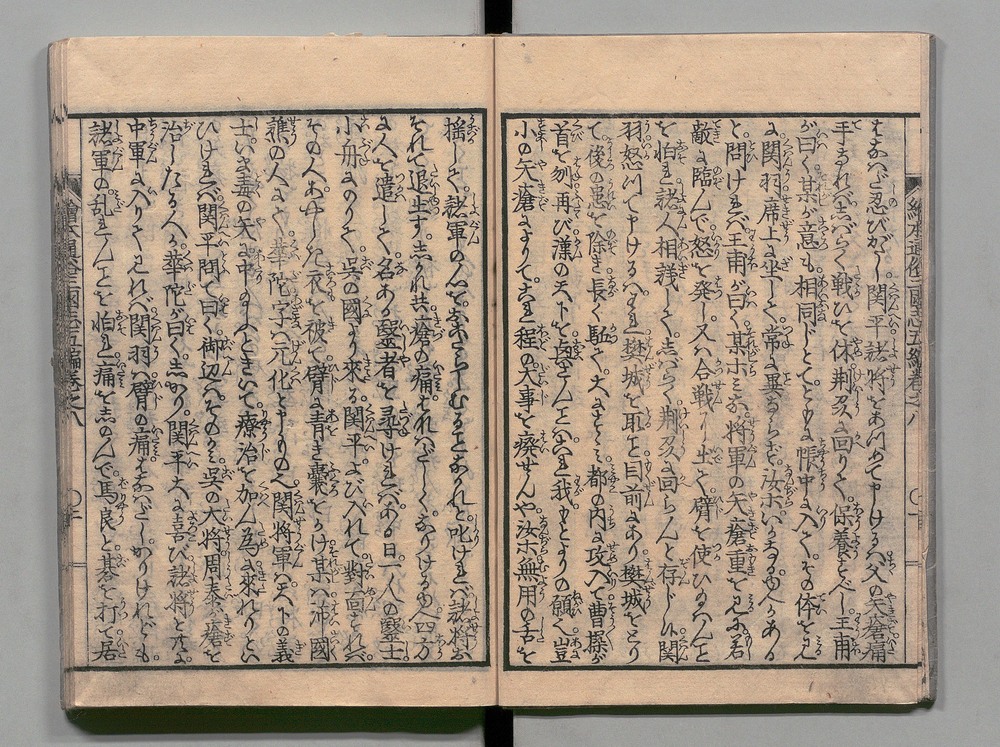 はなハだ忍びがたし関平諸将をあつめて申けるハ父の矢瘡痛
手なれバしバらく戦ひを休荊州に回りて保養すべし王甫
が曰く某が意も相同じとてともに帳中に入てその体を見る
に関羽席上に坐して常に異ならず汝ホいかなるゆへかある
と問けれバ王甫が曰く某ホミな将軍の矢瘡重きを見て若
敵に臨んで怒を発し又ハ合戦に出て臂を使ひ給ハんこと
を怕れ諸人相議してしバらく荊州に回らんと存じ候関
羽怒つて申けるハ今樊城を取こと目前にあり樊城をとり
て後の患を除き長く駈て大にすゝミ都の内に攻入て曹操が
首を刎再び漢の天下を興さんことこれ我もとよりの願なり豈
小の矢瘡によりてこれ程の大事を廃せんや汝ホ無用の舌を
揺して諸軍の心をおこたらしむることなかれと叱けれバ諸将お
それて退出すしかれ共瘡の痛それハげしくなりけるゆへ四方
に人を遣して名ある医者を尋けれバある日一人の医士
小舟にのりて呉の國より来る関平よび入れて対面すれバ
その人あやしき衣を被て臂に青き嚢をかけ某ハ沛國
譙の人にて華陀字ハ元化と申ものなり関将軍ハ天下の義
士いま毒の矢に中り給ふときいて療治を加ん為に来れりとい
ひけれバ関平問て曰く御辺ハそのかミ呉の大将周泰が瘡を
治したる人か華陀が曰くしかり関平大に喜び諸将と共に
中軍に入りてこれバ関羽ハ臂の痛ははげしかりけれども
諸軍の乱れんことを怕れ痛をしのんで馬良と碁を打て居
繪本通俗三國志五編巻之八
繪本通俗三國志五編巻之八